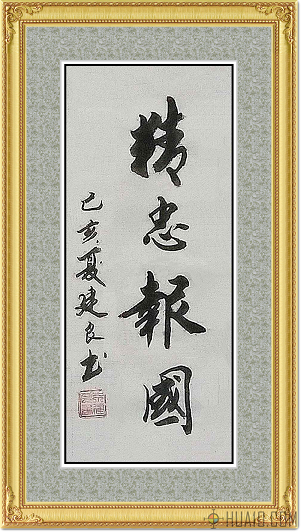 精忠報國
己亥夏建良书
HUAIS.COM